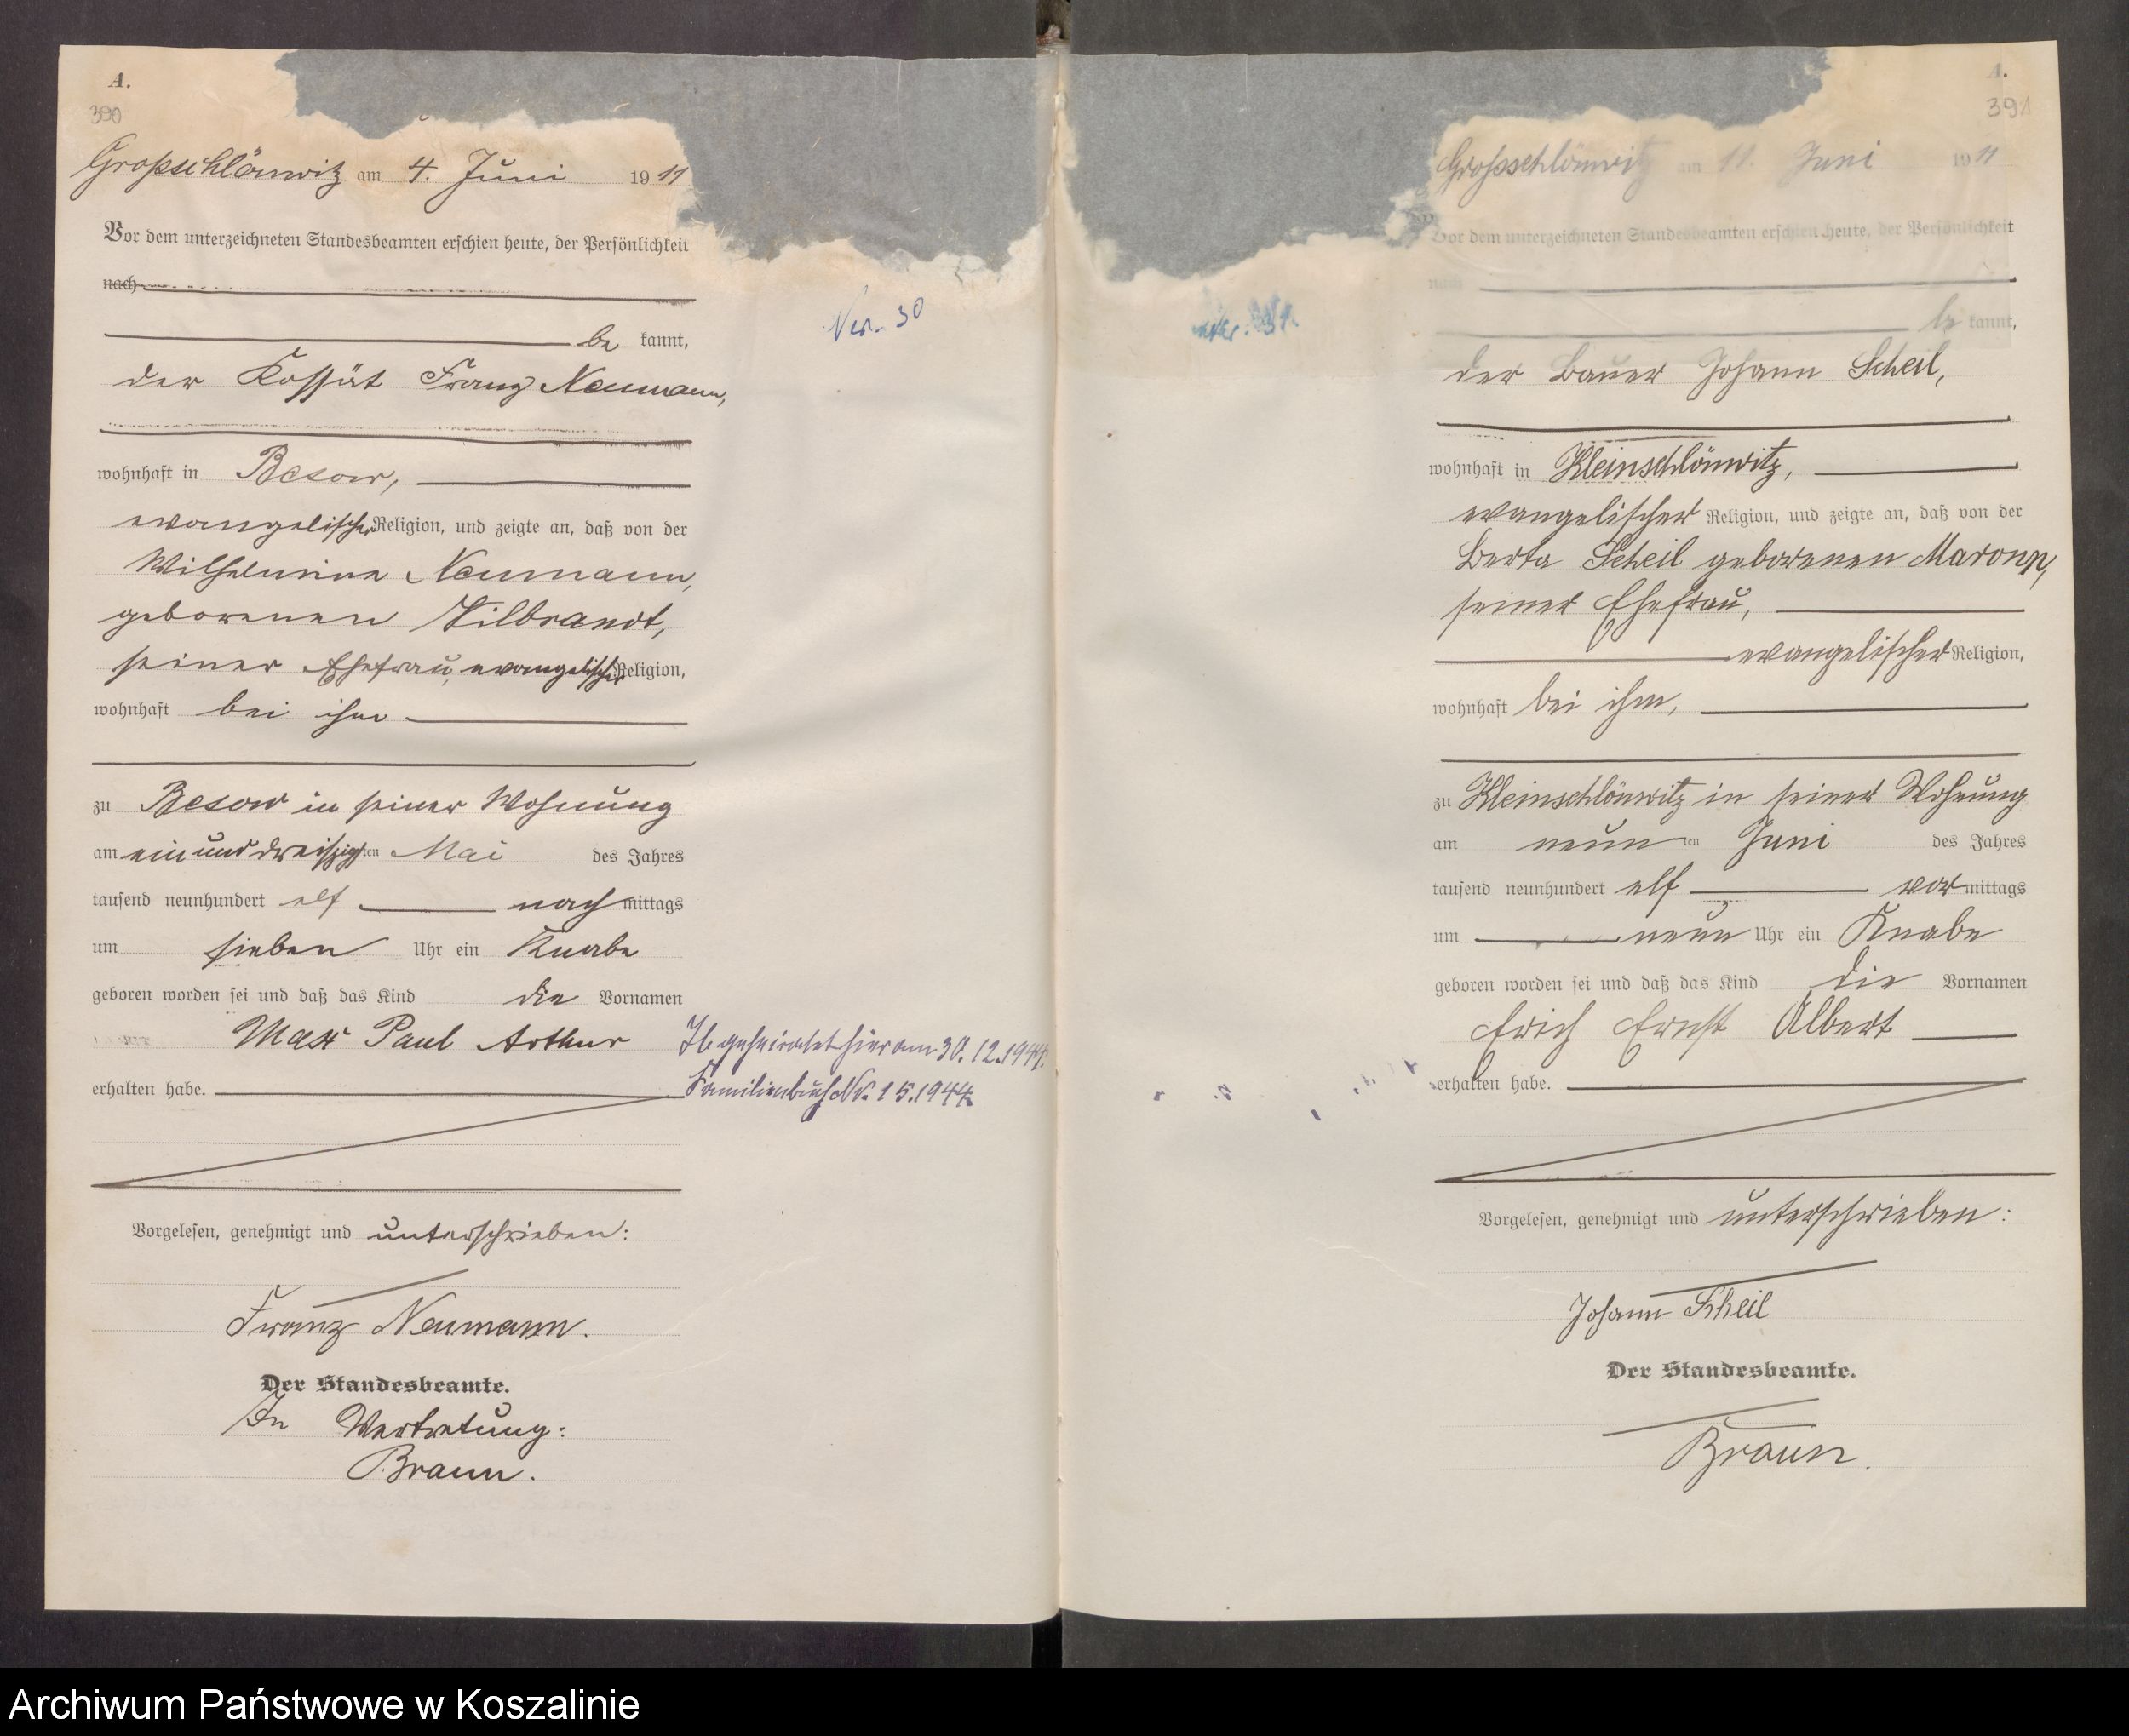 A.
390
Großschlönwitz am 4. Juni 1911
Vor dem unterzeichneten Standesbeamten erschien heute, der Persönlichkeit
nach
be kannt,
der Kossät Franz Neumann,
wohnhaft in Besow,
evangelischer Religion, und zeigte an, daß von der
Wilhelmine Neumann,
geborenen Hilbrandt,
seiner Ehefrau, evangelischer Religion,
wohnhaft bei ihm
zu Besow in seiner Wohnung
am einunddreißigsten Mai des Jahres
tausend neunhundert elf nachmittags
um sieben Uhr ein Knabe
geboren worden sei und daß das Kind die Vornamen
Max Paul Arthur
erhalten habe.
Vorgelesen, genehmigt und unterschrieben:
Franz Neumann.
Der Standesbeamte.
In Vertretung:
Braun.
Nr. 30
geheiratet hier am 30.12.1944.
Familienbuch Nr. 15.1944
A.
391
Großschlönwitz am 11. Juni 1911
Vor dem unterzeichneten Standesbeamten erschien heute, der Persönlichkeit
nach
be kannt,
der Bauer Johann Scheil,
wohnhaft in Kleinschlönwitz,
evangelischer Religion, und zeigte an, daß von der
Berta Scheil geborenen Maronn,
seiner Ehefrau,
evangelischer Religion,
wohnhaft bei ihm,
zu Kleinschlönwitz in seiner Wohnung
am neunten Juni des Jahres
tausend neunhundert elf vormittags
um neun Uhr ein Knabe
geboren worden sei und daß das Kind die Vornamen
Erich Ernst Albert
erhalten habe.
Vorgelesen, genehmigt und unterschrieben:
Johann Scheil
Der Standesbeamte.
Braun.
Nr. 31.
Archiwum Państwowe w Koszalinie